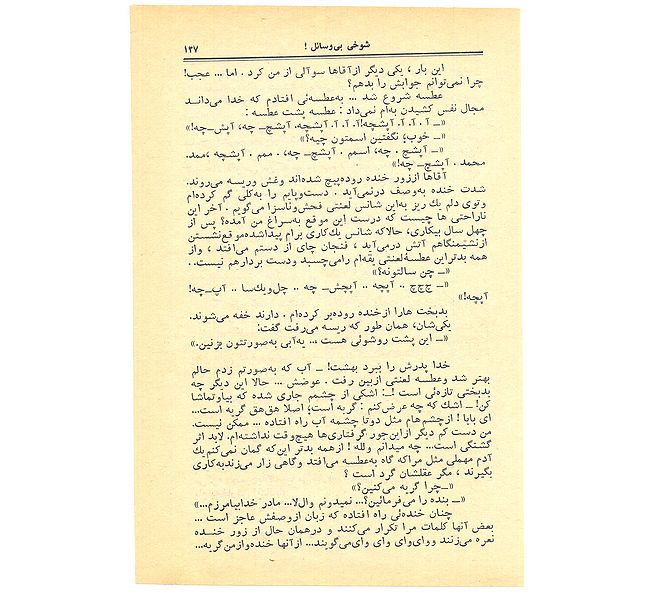 شوخی بی‌وسائل !
۱۲۷
این بار ، یکی دیگر از آقاها سوآلی از من کرد . اما ... عجب!
چرا نمی‌توانم جوابش را بدهم؟
عطسه شروع شد ... به‌عطسه‌ئی افتادم که خدا می‌دانـد
مجال نفس کشیدن به‌ام نمی‌داد : عطسه پشت عطسه :
«ــ آ . آ. آ. آپشچه!آ. آ. آ. آپشچه. آپشچـ چه، آپش‌ـ‌چه!»
«ــ خوب؛ نگفتین اسمتون چیه؟»
«ــ آپشچ . چه، اسمم . آپشچـ چه، . ممم . آپشچه ،ممد.
محمد . آپشچـ چه!»
آقاها اززور خنده روده‌پیچ شده‌اند وغش وریسه می‌روند.
شدت خنده به‌وصف درنمی‌آید . دست‌وپایم را به‌کلی گم کرده‌ام
وتوی دلم یك ریز به‌این شانس لعنتی فحش‌وناسزا می‌گویم . آخر این
ناراحتی ها چیست که درست این موقع به‌سـراغ من آمده؟ پس از
چهل سال بیکاری، حالاکه شانس یك‌کاری برام پیداشده‌موقع‌نشستن
ازنشیمنگاهم آتش درمی‌آید ، فنجان چای از دستم می‌افتد ، واز
همه بدتراین عطسهٔ‌لعنتی یقه‌ام رامی‌چسبد ودست بردارهم نیست. .
«ــ چن سالتونه؟»
«ــ چ‌چ‌چ .. آپچه .. آپچش‌ـ چه .. چل‌ویك‌سا .. آپ‌ـ‌چه!
آپچه!»
بدبخت هارا ازخنده روده‌بر کرده‌ام . دارند خفه می‌شوند.
یکی‌شان، همان طور که ریسه می‌رفت گفت:
«ــ این پشت روشوئی هست ،.. یه‌آبی به‌صورتتون بزنین.»
خدا پدرش را ببرد بهشت! ــ آب که به‌صورتم زدم حالم
بهتر شد وعطسه لعنتی ازبین رفت . عوضش ... حالا این دیگر چه
بدبختی تازه‌ئی است !ــ: اشکی از چشمم جاری شده که بیاوتماشا
کن! ــ اشك که چه عرض‌کنم : گریه است؛ اصلا هق‌هق گریه است...
ای بابا ! ازچشم‌هام مثل دوتا چشمه آب راه افتاده ... ممکن نیست.
من دست کم دیگر ازاین‌جور گرفتاری‌ها هیچ‌وقت نداشته‌ام. لابد اثر
گشنگی است... چه میدانم ولله ! ازهمه بدتر این‌که گمان نمی‌کنم‌یك
آدم مهملی مثل مراکه گاه به‌عطسه می‌افتد وگاهی زار می‌زندبه‌کاری
بگیرند ، مگر عقلشان گرد است ؟
«ــ‌چرا گریه می‌کنین؟»
«ــ بنده را می‌فرمائین؟... نمیدونم وال‌لا... مادر خدابیامرزم...»
چنان خنده‌ئی راه افتاده که زبان ازوصفش عاجز است ...
بعض آنها کلمات مرا تکرار می‌کنند و درهمان حال از زور خنـده
نعره می‌زنند ووای‌وای وای وای‌می‌گویند... ازآنها خنده‌وازمن‌گریه...